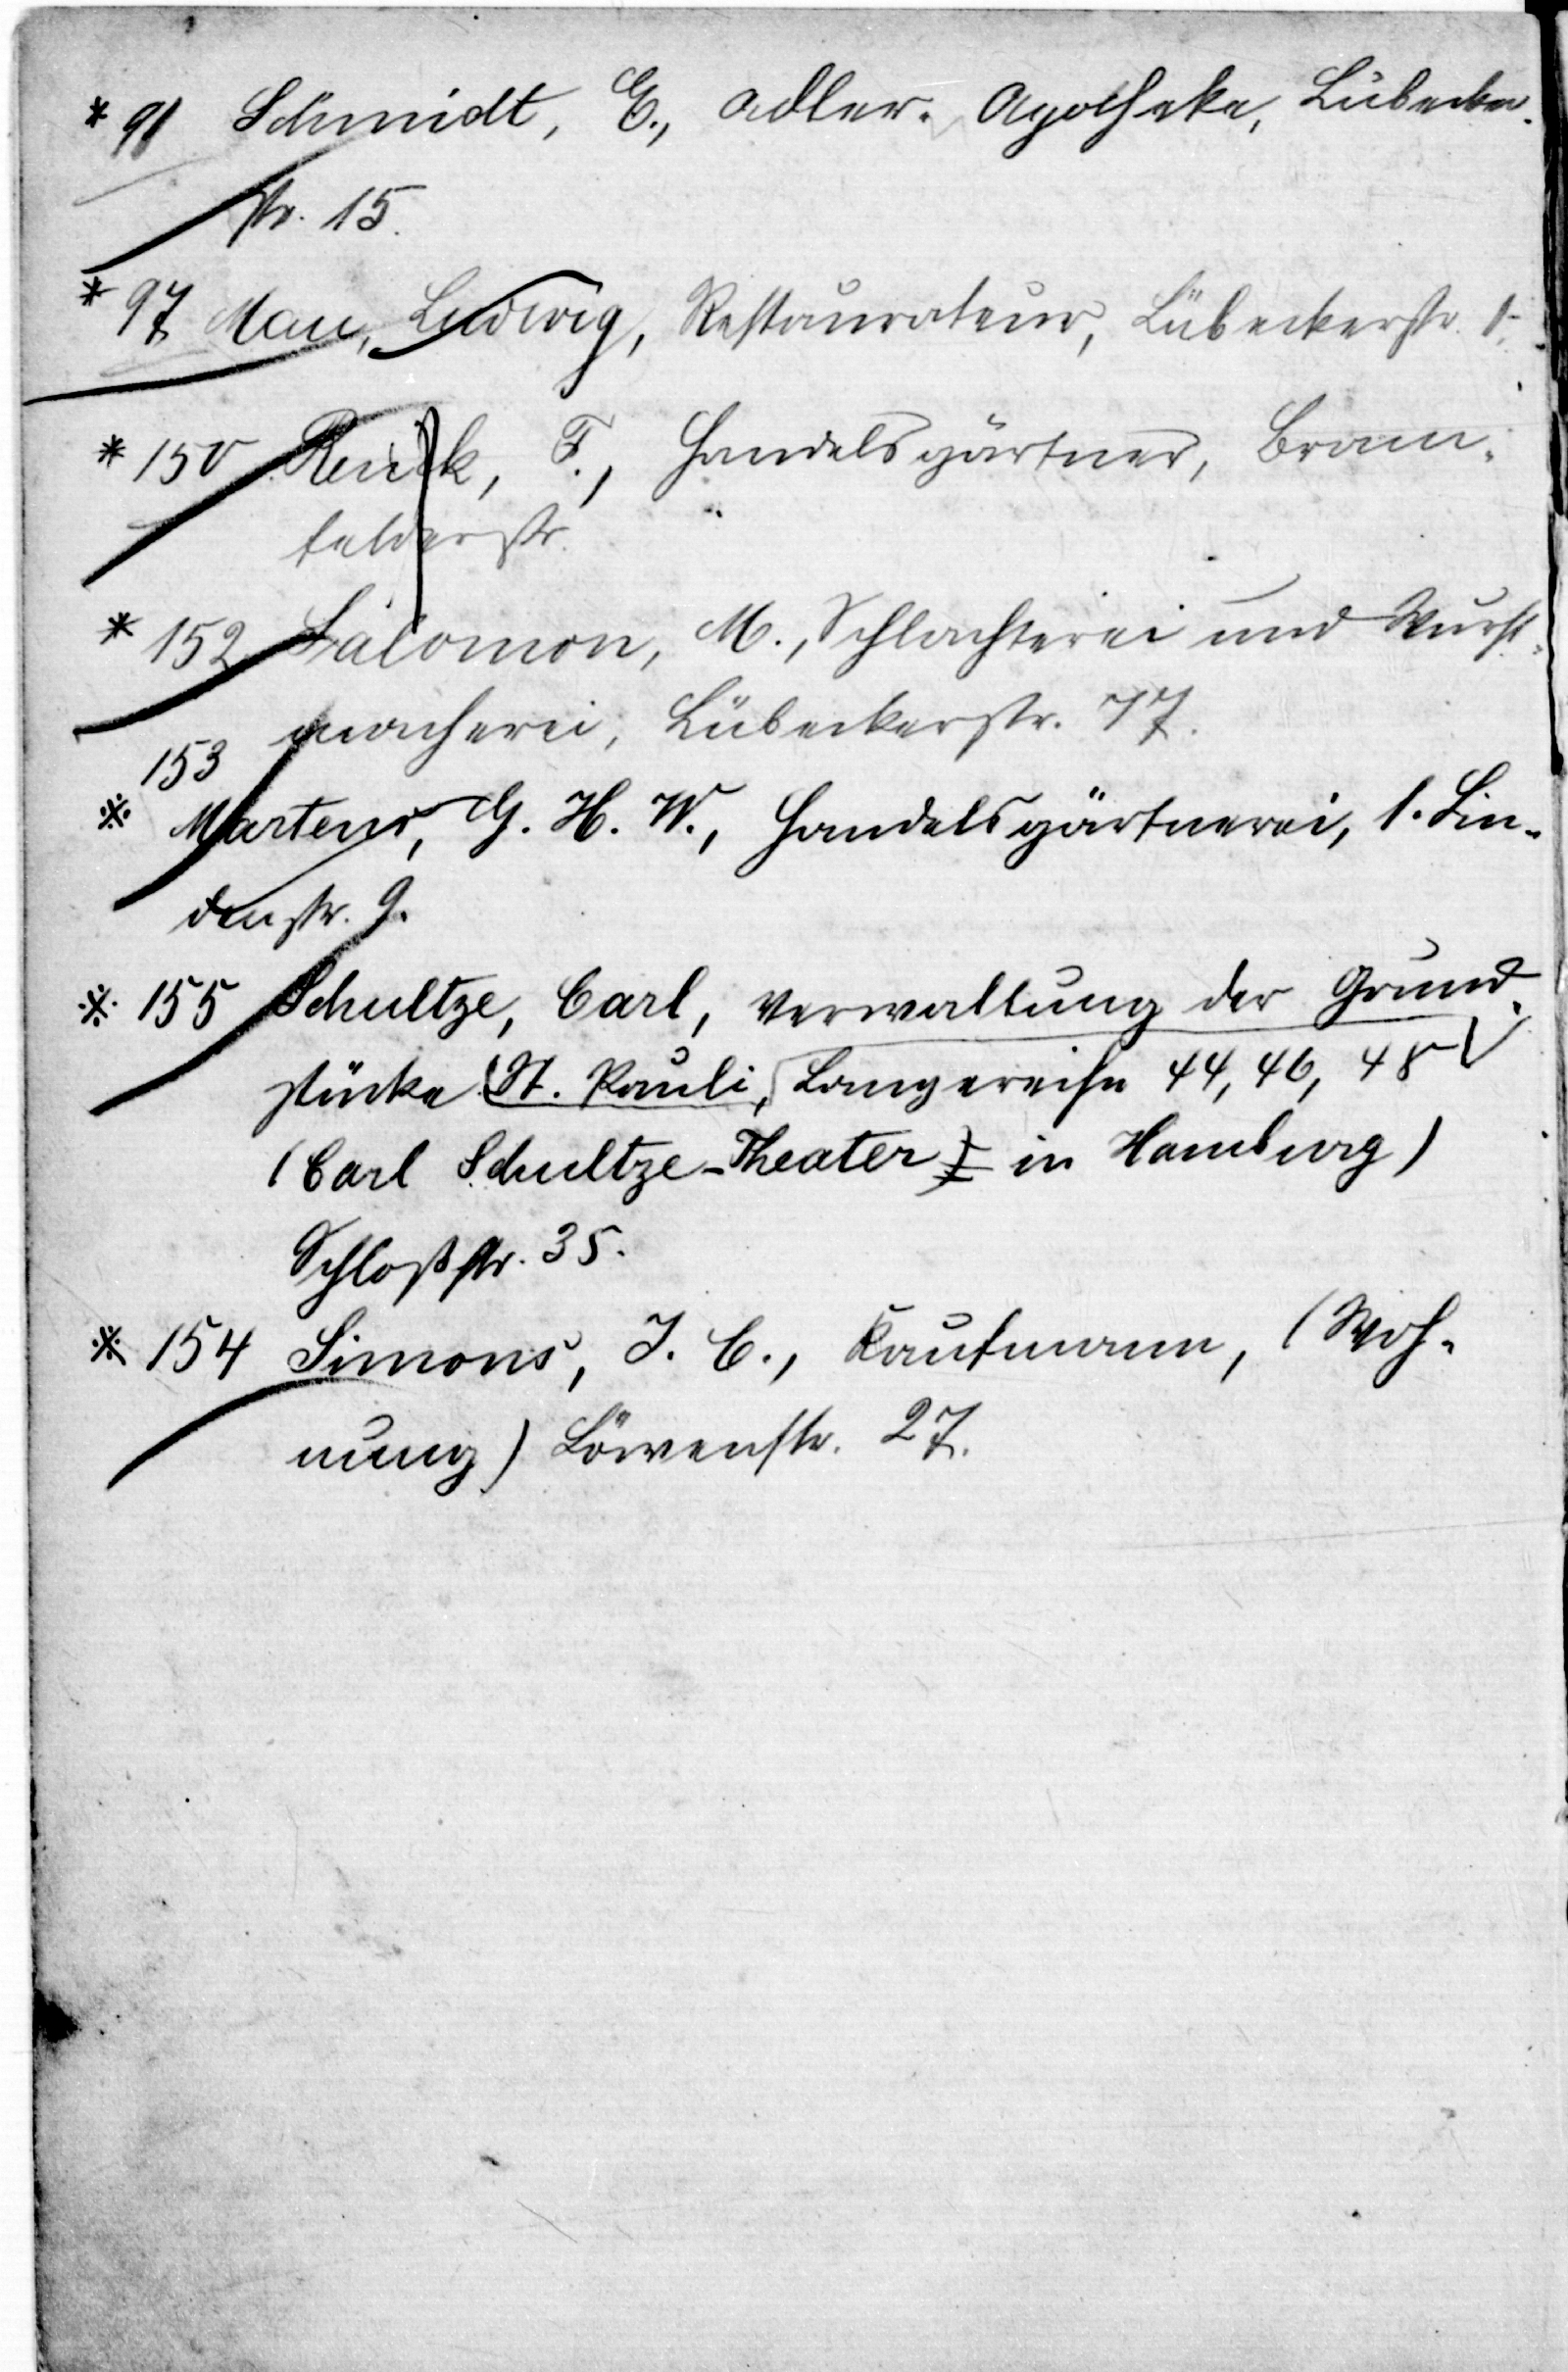 * 91 Schmidt, E., Adler-Apotheke, Lübecker-
str. 15.
* 97 Mau, Ludwig, Restaurateur, Lübeckerstr. 1.
* 150 F., Handelsgärtner, Bram-
felderstr.
* 152 Salomon, M., Schlachterei und Wurst-
macherei, Lübeckerstr. 77.
153
※ Martens, G. H. W., Handelsgärtnerei, 1. Lin-
denstr. 9.
※ 155 Schultze, Carl, Verwaltung der Grund-
stücke (St. Pauli, Langereihe 44, 46, 48
(Carl Schultze-Theater) in Hamburg)
Schloßstr. 35.
※ 154 Simons, J. C., Kaufmann, (Woh-
nung) Löwenstr. 27.